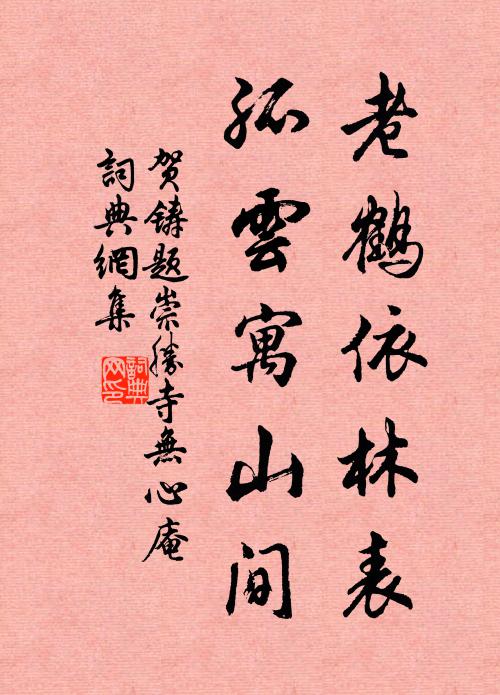 老鹤依林表
孤雲寓山间
贺鑄题崇勝寺無心庵
詞典網集
詞典
网印